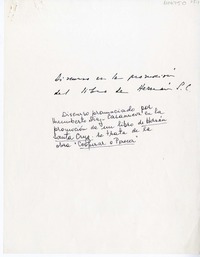 Discurso en la promoción
del libro de Hernán S.C.
Discurso pronunciado por
Humberto Díaz Casanueva en la
promoción de un libro de Hernán
Santa Cruz. Se trata de la
obra "Cooperar o Perecer"